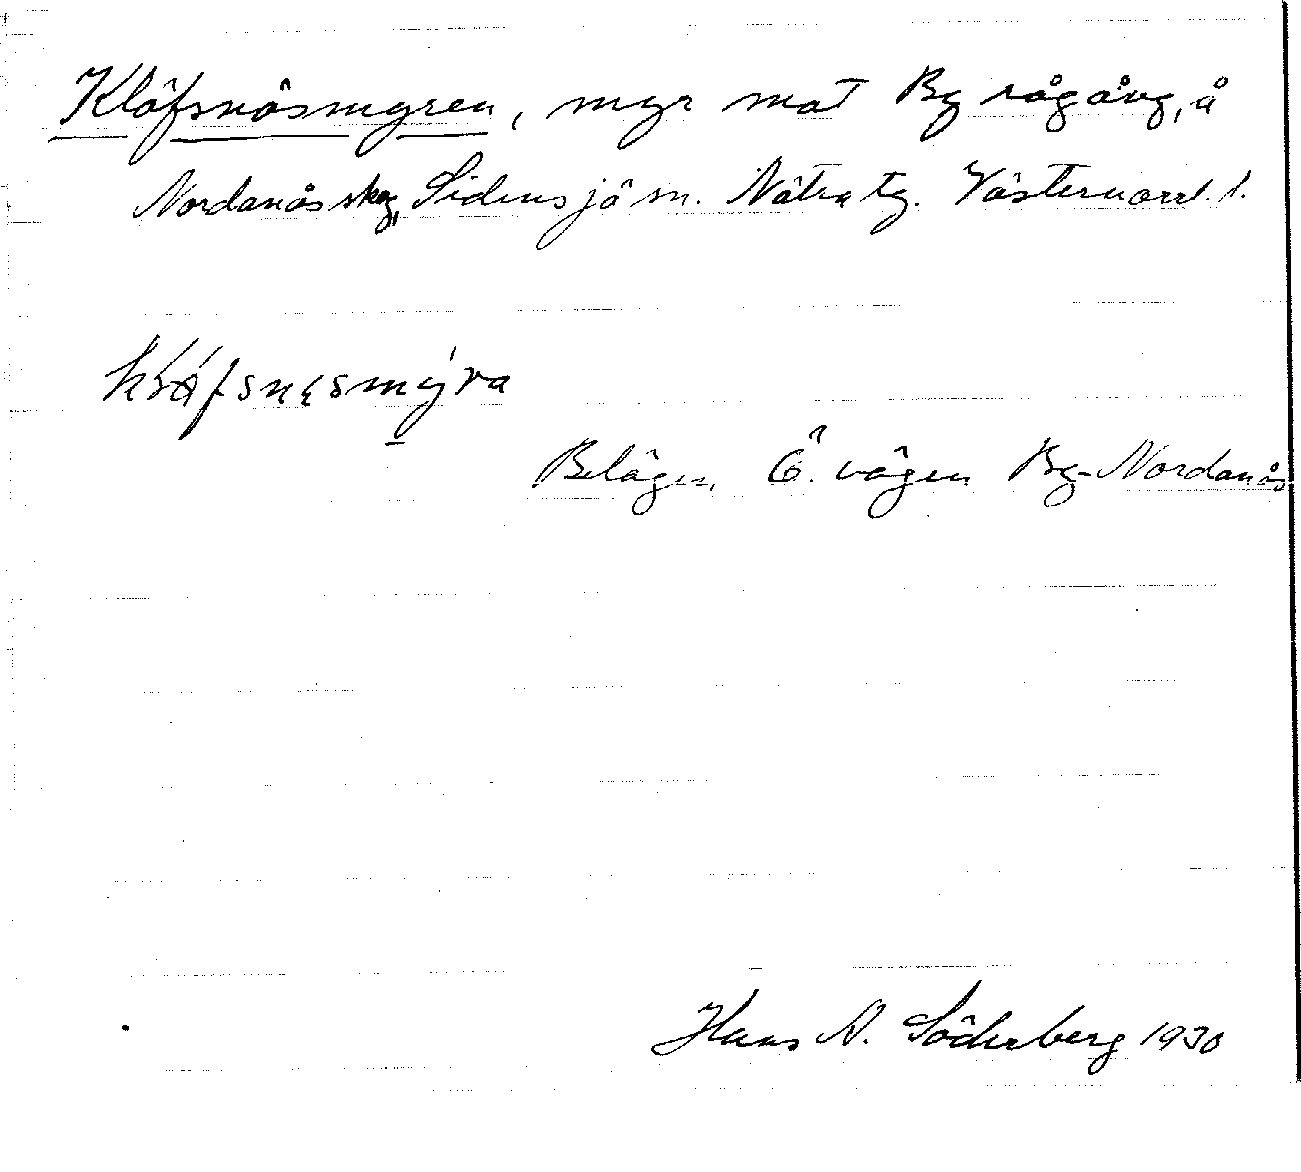 Klöfsnäsmyren, myr mot By rågång, å
Nordanås skog, Sidensjö sn. Nätra tg. Västernorrl. l.
Belägen Ö. vägen By-Nordanås
Hans N. Söderberg 1930